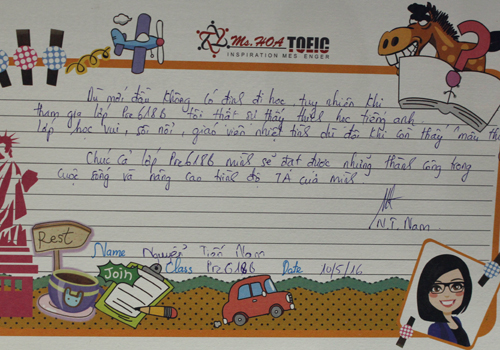 Ms. HOA TOEIC
INSPIRATION MESSENGER
Dù mới đầu không có định đi học, tuy nhiên khi
tham gia lớp Pre618B tôi thật sự thấy thích học tiếng anh.
lớp học vui, sôi nổi, giáo viên nhiệt tình dù đôi khi còn thấy "máu
Chúc cả lớp Pre618B mình sẽ đạt được những thành công trong
cuộc sống và nâng cao trình độ TA của mình.
N.T. Nam
Rest
Name Nguyễn Tiến Nam
Join
Class Pre618B Date 10/5/16